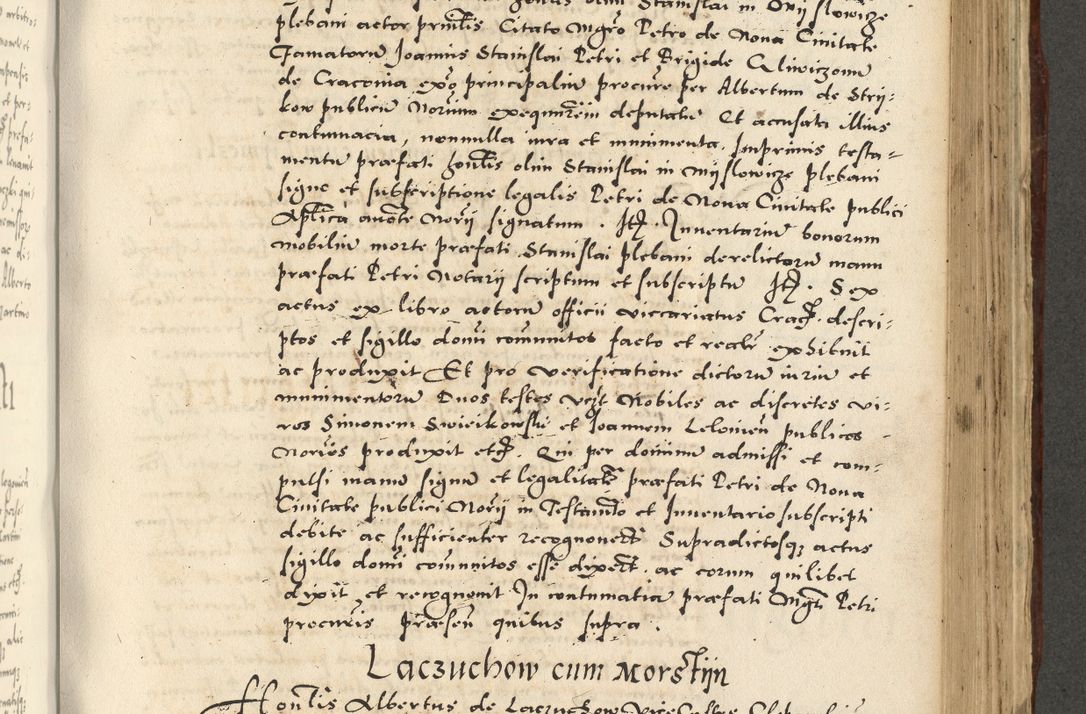 plebani actor prinłis Citato Mgro Petro de Nova Civitate
Famatorum Joannis Stanislai Petri et Brigide
de Cracovia exo principaliu procure per Albertum de Stry-
kow publicu Norium exequutem deputatu Et accusata illius
contumacia, nonnulla iura et munimenta. Imprimis testa-
mentu præfati honłis olim Stanislai in Myslowicze plebani
signo et subscriptione legalis Petri de Nova Civitate publici
Aplica aucte Norii signatum . It. Inventariu bonorum
mobiliu morte præfati Stanislai plebani derelictoru manu
præfati Petri Notarii scriptum et subscriptu It. Sex
actus ex libro actoru officii vicariatus Crac. descri-
ptos et sigillo domi comunitos facto et realr exhibuit
ac produxit Et pro verificatione dictoru iuriu et
munimentoru Duos testes vczt Nobiles ac discretos vi-
ros Simonem Swieikowski et Joannem publicos
Norios produxit etc. Qui per dominum admissi et com-
pulsi manu signu et legalitate præfati Petri de Nova
Civitate publici Norii in Testamto et Inventario subscripti
debite ac sufficienter recognovert Supradictosq actus
sigillo domi comunitos esse dixert. ac eorum quilibet
dixit et recognovit In contumatia præfati Mgri Petri
procuris præsen quibus supra .
Laczuchow cum Morstijn
Honłis Albertus de Laczuchow